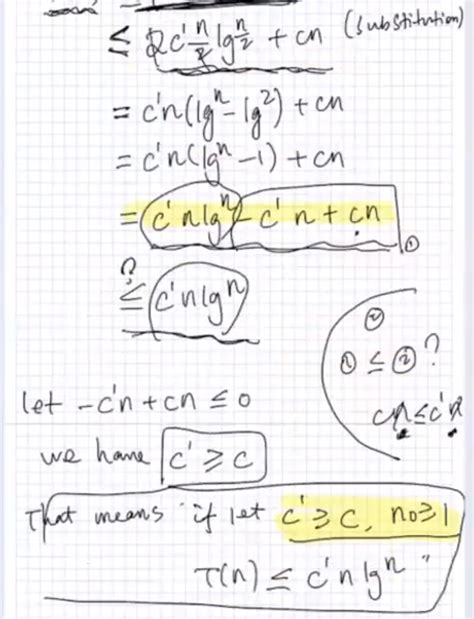 ≤ 2c'n/2 lg n/2 + cn (substitution)
= c'n(lg n - lg 2) + cn
= c'n(lg n - 1) + cn
= c'n lg n - c'n + cn ①
?
≤ c'n lg n
②
① ≤ ②?
cn ≤ c'n
let -c'n + cn ≤ 0
we have c' ≥ c
That means "if let c' ≥ c, n0 ≥ 1
T(n) ≤ c'n lg n "